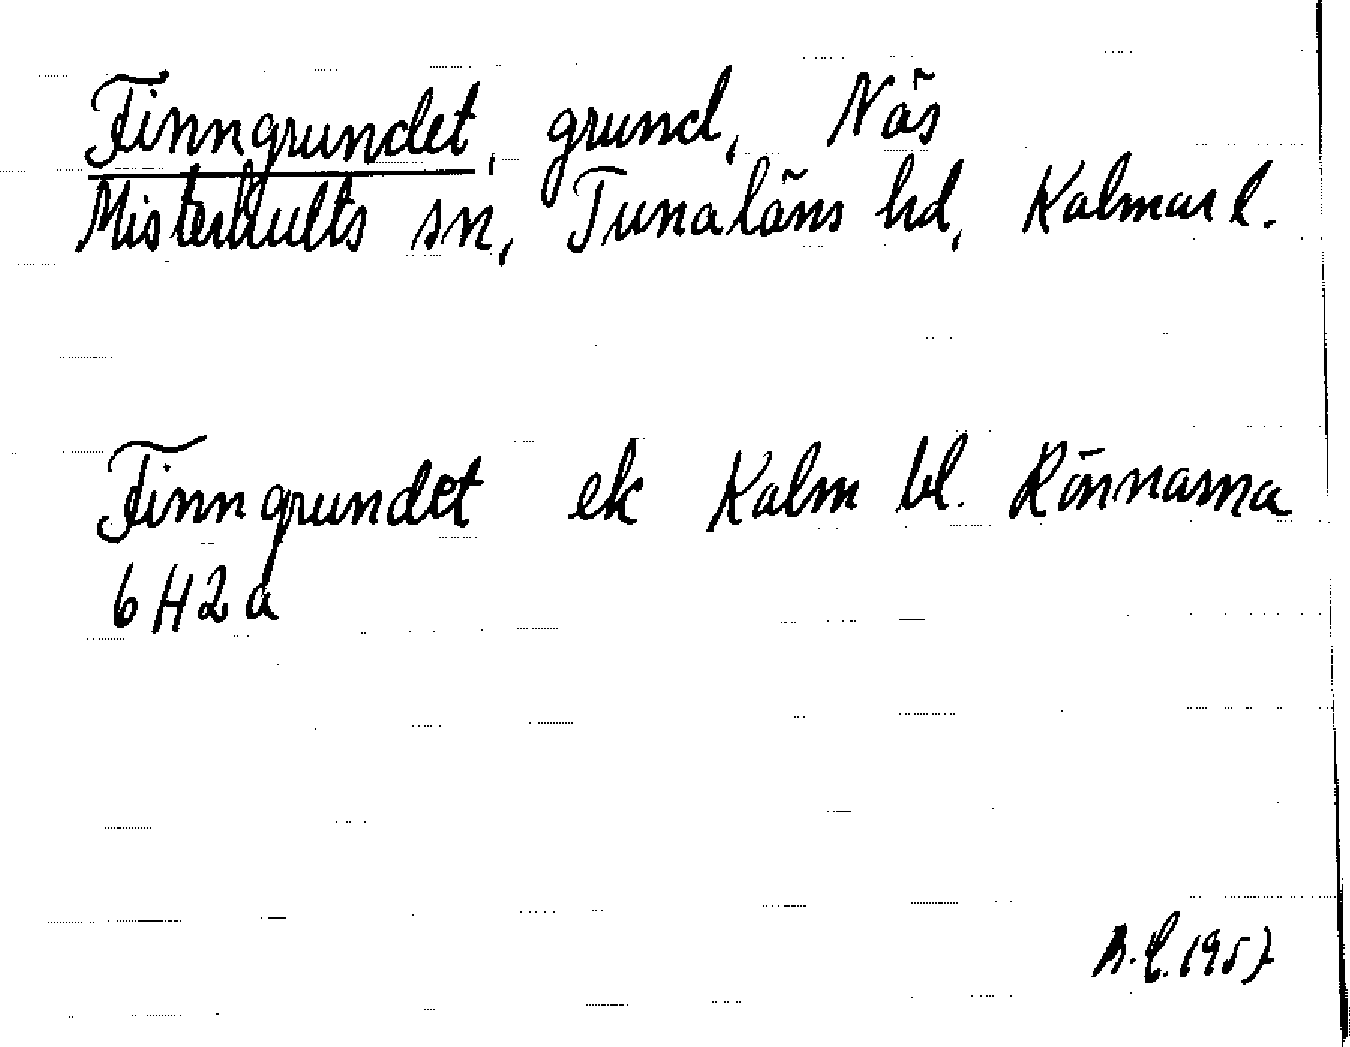 Finngrundet, grund, Näs
Misterhults sn, Tunaläns hd, Kalmar l.
Finngrundet ek Kalm bl. Rönnarna
6 H 2 a
A.L. 1957